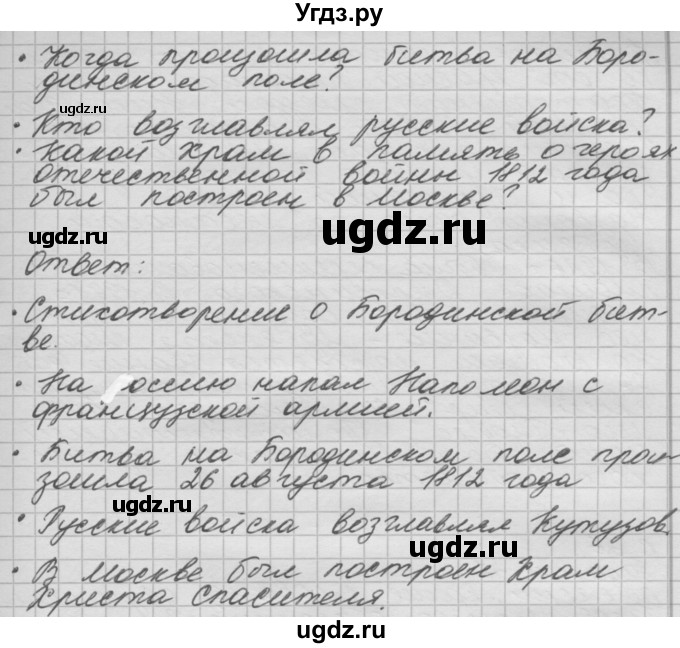 Угдз.ру
• Когда произошла битва на Боро-
динском поле?
угдз.ру
• Кто возглавлял русские войска?
• Какой храм в память о героях
отечественной войны 1812 года
был построен в Москве?
ugdz.ru
ugdz.ru
Ответ:
• Стихотворение о Бородинской бит-
ве.
• На оссию напал Наполеон с
французской армией.
• Битва на Бородинском поле прои-
зошла 26 августа 1812 года
ugdz.ru
• Русские войска возглавлял Кутузов.
ugdz.ru
• В Москве был построен Храм
Христа Спасителя.
ugdz.ru